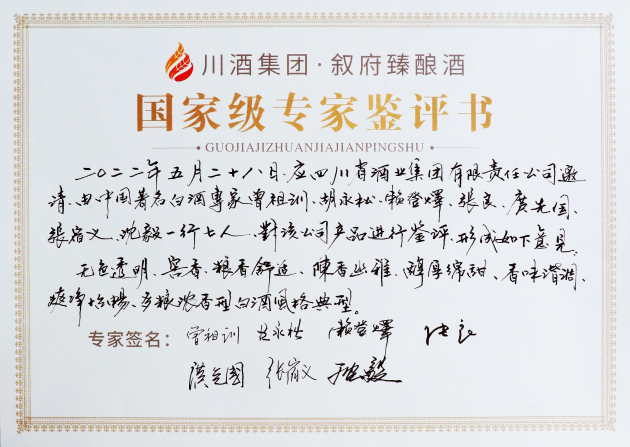 川酒集团·叙府臻酿酒
国家级专家鉴评书
GUOJIAJIZHUANJIAJIANPINGSHU
二〇二二年五月二十八日,应四川省酒业集团有限责任公司邀
请,由中国著名白酒专家曾祖训、胡永松、赖登燡、张良、庹先国、
张宿义、沈毅一行七人,對该公司产品进行鉴评,形成如下意见。
无色透明、窖香、粮香舒适、陳香幽雅、醇厚绵甜、香味谐调、
爽净怡暢、多粮浓香型白酒风格典型。
专家签名: 曾祖训 胡永松 赖登燡 张良
庹先國 张宿义 沈毅